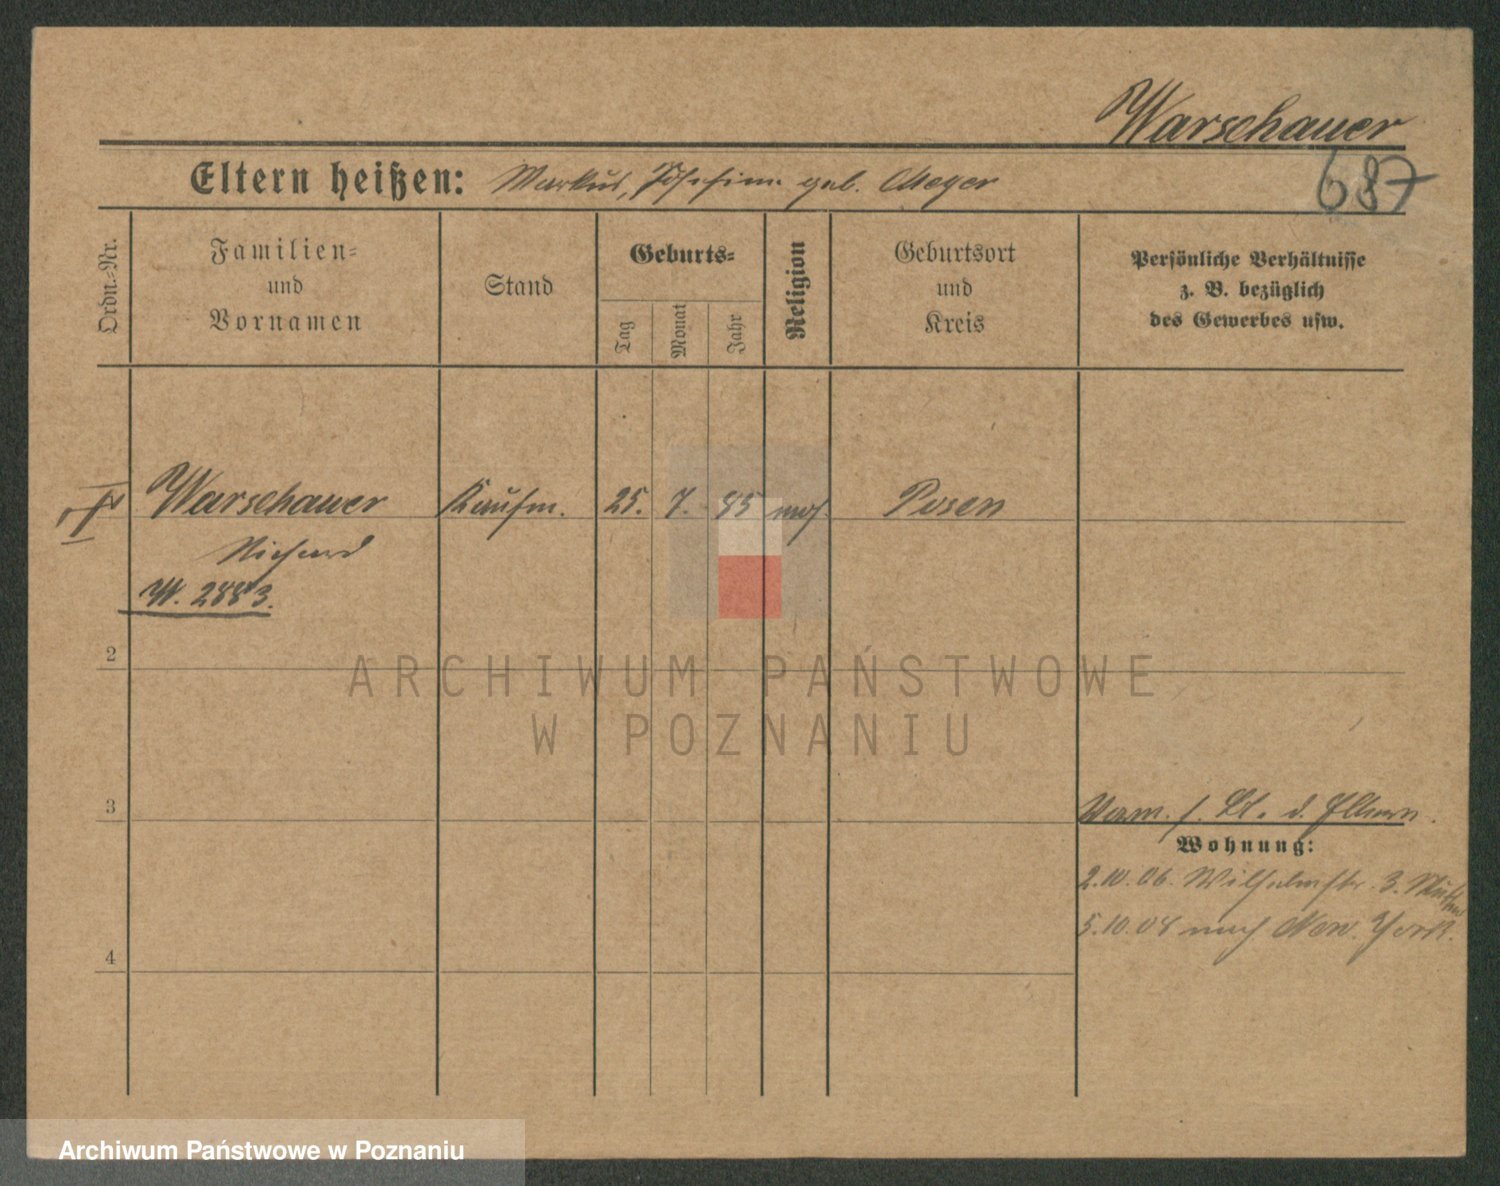 Warschauer
687
Eltern heißen: Markus, Josefine geb. Meyer
Ordn.-Nr.
Familien-
und
Vornamen
Stand
Geburts-
Tag
Monat
Jahr
Religion
Geburtsort
und
Kreis
Persönliche Verhältnisse
z. B. bezüglich
des Gewerbes usw.
Warschauer Kaufm. 25. 7. 85 mos. Posen
Richard
W. 2883.
2
3
4
Verm. s. Bl. d. Eltern.
Wohnung:
2.10.06. Wilhelmstr. 3. Mutter
5.10.08 nach New. York.
ARCHIWUM PAŃSTWOWE
W POZNANIU
Archiwum Państwowe w Poznaniu